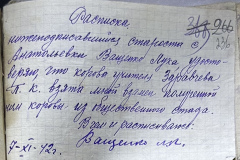 Расписка
нижеподписавшийся староста с.
Анатольевки Ващенко Лука удосто-
веряю, что корова учителя Здравчева
П. К. взята мной взамен полученой
им коровы из общественного стада
В чем и расписываюсь.
Ващенко
9-XI-42г.
266